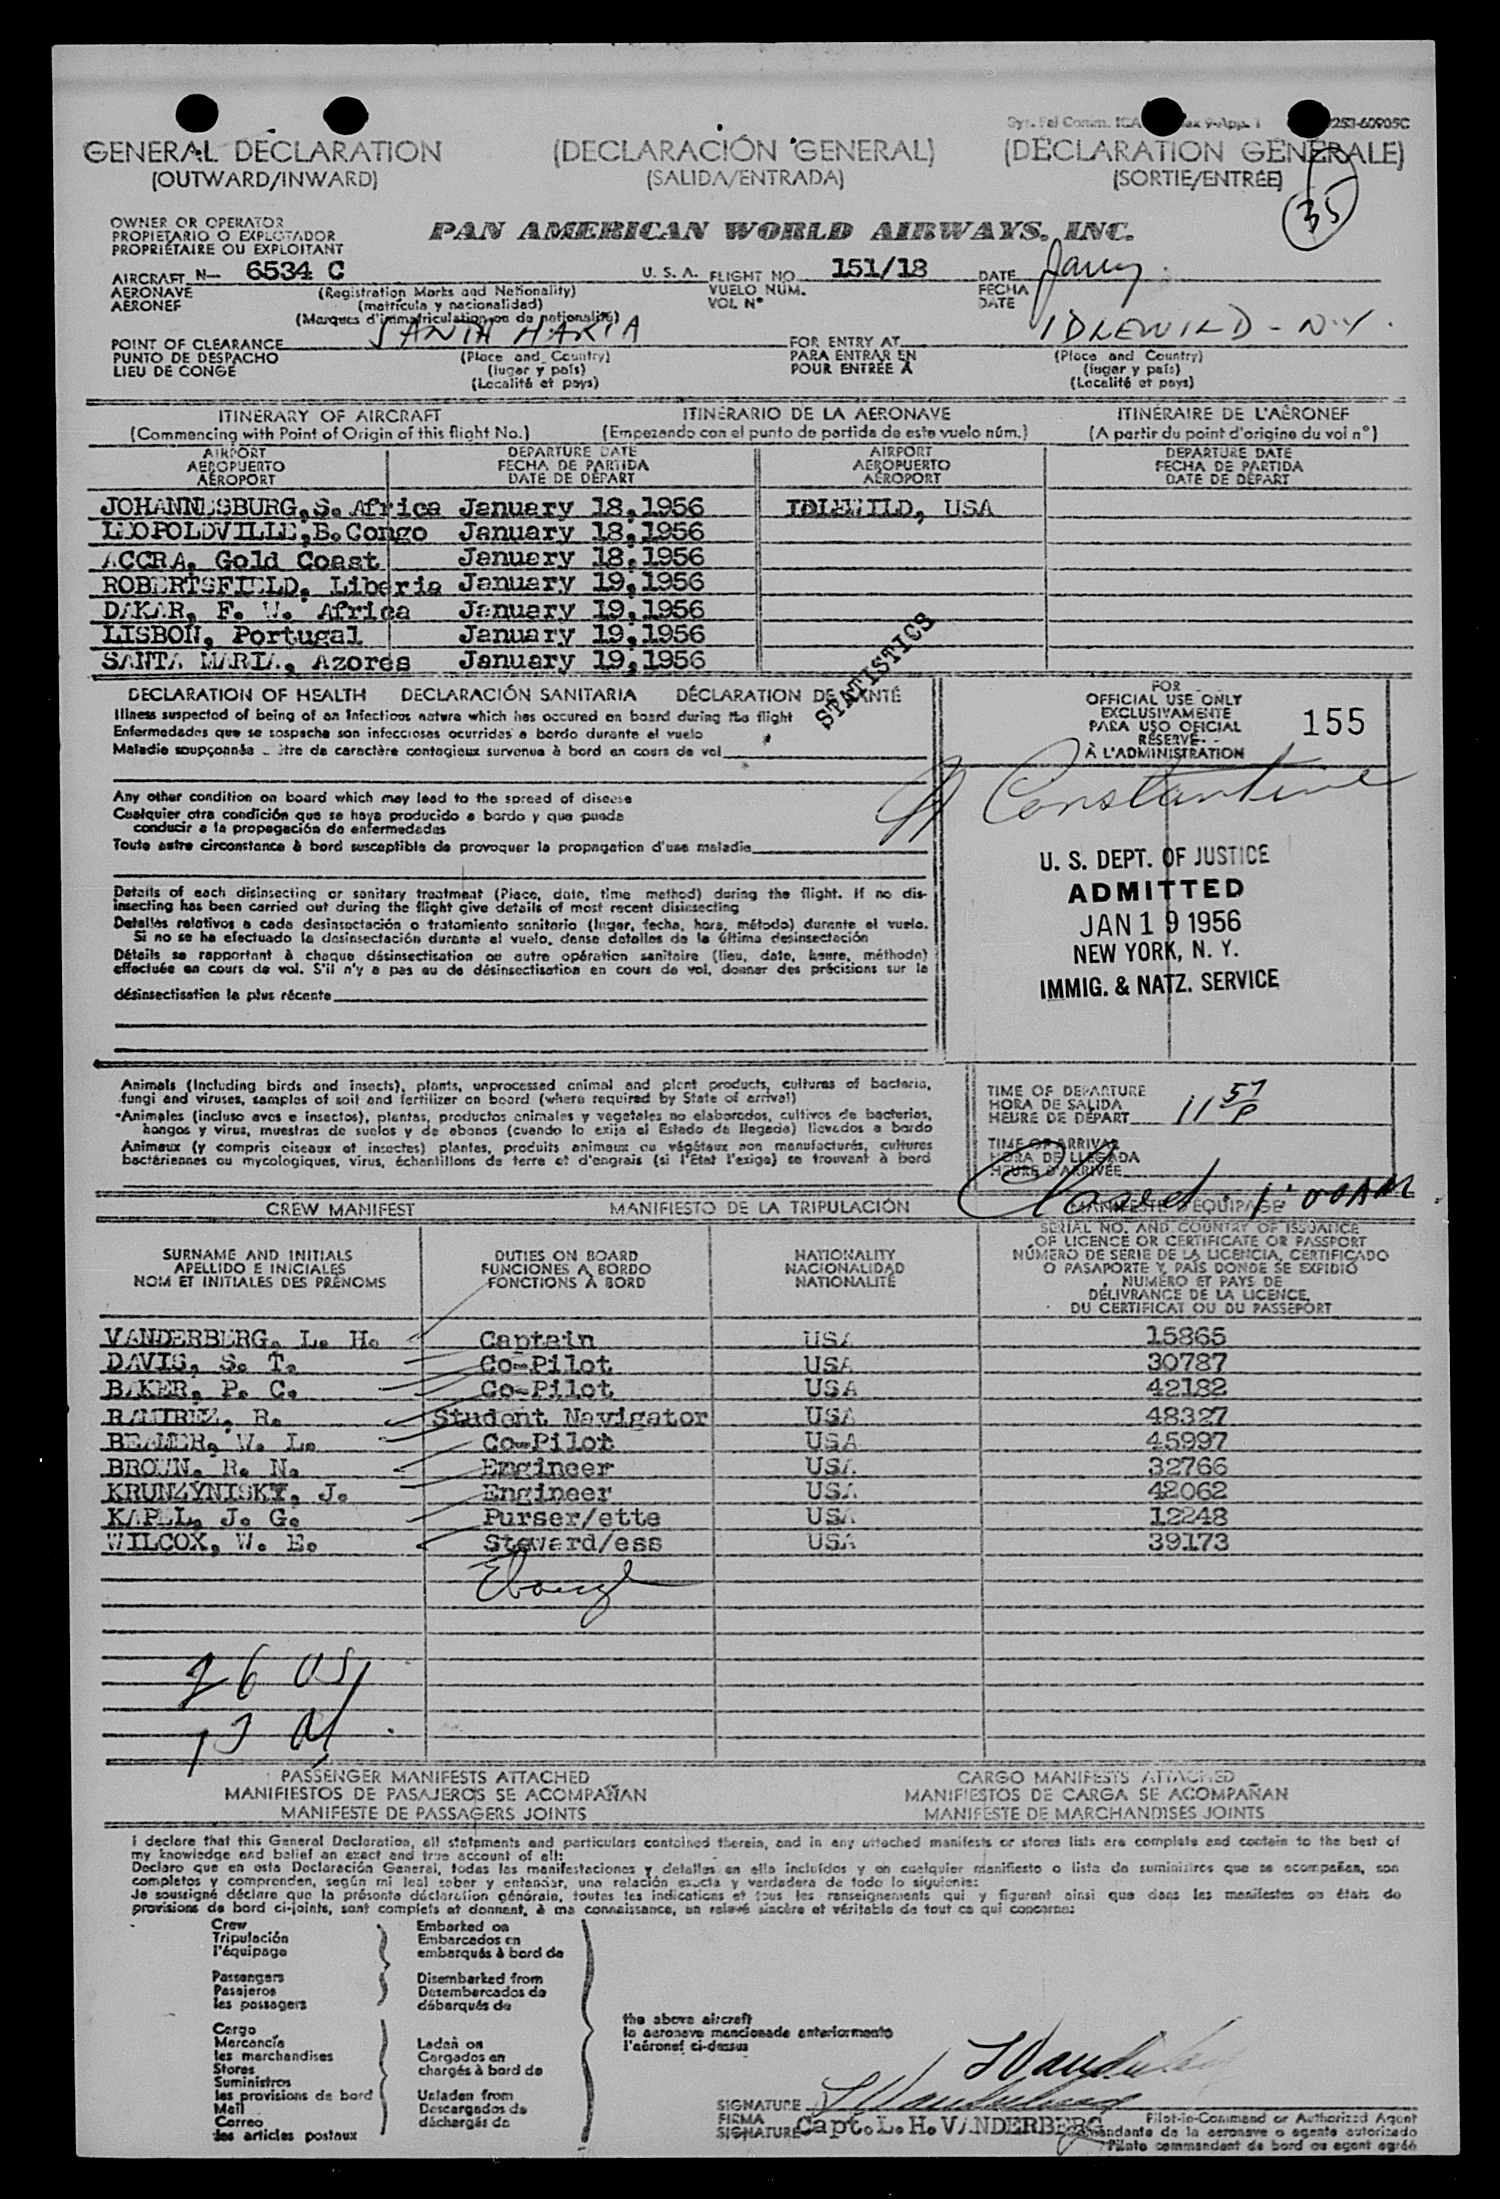 GENERAL DECLARATION (DECLARACIÓN GENERAL) (DÉCLARATION GÉNÉRALE)
(OUTWARD/INWARD) (SALIDA/ENTRADA) (SORTIE/ENTRÉE)
35
OWNER OR OPERATOR
PROPIETARIO O EXPLOTADOR
PROPRIÉTAIRE OU EXPLOITANT
PAN AMERICAN WORLD AIRWAYS, INC.
AIRCRAFT N— 6534 C U. S. A. FLIGHT NO. 151/18 DATE
AERONAVE (Registration Marks and Nationality) VUELO NUM. FECHA
AÉRONEF (matrícula y nacionalidad) VOL Nº DATE
(Marques d'immatriculation ou de nationalité)
POINT OF CLEARANCE SANTA MARIA FOR ENTRY AT IDLEWILD - N.Y.
PUNTO DE DESPACHO (Place and Country) PARA ENTRAR EN (Place and Country)
LIEU DE CONGÉ (lugar y país) POUR ENTRÉE À (lugar y país)
(Localité et pays) (Localité et pays)
ITINERARY OF AIRCRAFT ITINERARIO DE LA AERONAVE ITINÉRAIRE DE L'AÉRONEF
(Commencing with Point of Origin of this flight No.) (Empezando con el punto de partida de este vuelo núm.) (A partir du point d'origine du vol nº)
AIRPORT DEPARTURE DATE AIRPORT DEPARTURE DATE
AEROPUERTO FECHA DE PARTIDA AEROPUERTO FECHA DE PARTIDA
AÉROPORT DATE DE DÉPART AÉROPORT DATE DE DÉPART
JOHANNESBURG, S. Africa January 18, 1956 IDLEWILD, USA
LEOPOLDVILLE, B. Congo January 18, 1956
ACCRA, Gold Coast January 18, 1956
ROBERTSFIELD, Liberia January 19, 1956
DAKAR, F. W. Africa January 19, 1956
LISBON, Portugal January 19, 1956
SANTA MARIA, Azores January 19, 1956
STATISTICS
DECLARATION OF HEALTH DECLARACIÓN SANITARIA DÉCLARATION DE SANTÉ
Illness suspected of being of an infectious nature which has occured on board during the flight
Enfermedades que se sospecha son infecciosas ocurridas a bordo durante el vuelo
Maladie soupçonnée être de caractère contagieux survenue à bord en cours de vol
Any other condition on board which may lead to the spread of disease
Cualquier otra condición que se haya producido a bordo y que pueda
conducir a la propagación de enfermedades
Toute autre circonstance à bord susceptible de provoquer la propagation d'une maladie
Details of each disinsecting or sanitary treatment (Place, date, time method) during the flight. If no dis-
insecting has been carried out during the flight give details of most recent disinsecting
Detalles relativos a cada desinsectación o tratamiento sanitario (lugar, fecha, hora, método) durante el vuelo.
Si no se ha efectuado la desinsectación durante el vuelo, dense detalles de la última desinsectación
Détails se rapportant à chaque désinsectisation ou autre opération sanitaire (lieu, date, heure, méthode)
effectuée en cours de vol. S'il n'y a pas eu de désinsectisation en cours de vol, donner des précisions sur la
désinsectisation la plus récente
FOR
OFFICIAL USE ONLY
EXCLUSIVAMENTE
PARA USO OFICIAL
RÉSERVÉ
À L'ADMINISTRATION
155
Constantine
U. S. DEPT. OF JUSTICE
ADMITTED
JAN 19 1956
NEW YORK, N. Y.
IMMIG. & NATZ. SERVICE
Animals (Including birds and insects), plants, unprocessed animal and plant products, cultures of bacteria,
fungi and viruses, samples of soil and fertilizer on board (where required by State of arrival)
Animales (incluso aves e insectos), plantas, productos animales y vegetales no elaborados, cultivos de bacterias,
hongos y virus, muestras de suelos y de abonos (cuando lo exija el Estado de llegada) llevados a bordo
Animaux (y compris oiseaux et insectes) plantes, produits animaux ou végétaux non manufacturés, cultures
bactériennes ou mycologiques, virus, échantillons de terre et d'engrais (si l'État l'exige) se trouvant à bord
TIME OF DEPARTURE
HORA DE SALIDA
HEURE DE DÉPART 11 57 P
TIME OF ARRIVAL
HORA DE LLEGADA
HEURE D'ARRIVÉE
Closed 1:00AM
CREW MANIFEST MANIFIESTO DE LA TRIPULACIÓN MANIFESTE D'ÉQUIPAGE
SURNAME AND INITIALS
APELLIDO E INICIALES
NOM ET INITIALES DES PRÉNOMS
DUTIES ON BOARD
FUNCIONES A BORDO
FONCTIONS À BORD
NATIONALITY
NACIONALIDAD
NATIONALITÉ
SERIAL NO. AND COUNTRY OF ISSUANCE
OF LICENCE OR CERTIFICATE OR PASSPORT
NÚMERO DE SERIE DE LA LICENCIA, CERTIFICADO
O PASAPORTE Y PAIS DONDE SE EXPIDIÓ
NUMÉRO ET PAYS DE
DÉLIVRANCE DE LA LICENCE,
DU CERTIFICAT OU DU PASSEPORT
VANDERBERG, L. H. Captain USA 15865
DAVIS, S. T. Co-Pilot USA 30787
BAKER, P. C. Co-Pilot USA 42182
RAMIREZ, R. Student Navigator USA 48327
BEAMER, W. L. Co-Pilot USA 45997
BROWN, R. N. Engineer USA 32766
KRUNZYNISKY, J. Engineer USA 42062
KAPLL, J. G. Purser/ette USA 12248
WILCOX, W. E. Steward/ess USA 39173
26 US
13 Al
PASSENGER MANIFESTS ATTACHED CARGO MANIFESTS ATTACHED
MANIFIESTOS DE PASAJEROS SE ACOMPAÑAN MANIFIESTOS DE CARGA SE ACOMPAÑAN
MANIFESTE DE PASSAGERS JOINTS MANIFESTE DE MARCHANDISES JOINTS
I declare that this General Declaration, all statements and particulars contained therein, and in any attached manifests or stores lists are complete and contain to the best of
my knowledge and belief an exact and true account of all:
Declaro que en esta Declaración General, todas las manifestaciones y detalles en ella incluídos y en cualquier manifiesto o lista de suministros que se acompañan, son
completos y comprenden, según mi leal saber y entender, una relación exacta y verdadera de todo lo siguiente:
Je soussigné déclare que la présente déclaration générale, toutes les indications et tous les renseignements qui y figurent ainsi que dans les manifestes ou états de
provisions de bord ci-joints, sont complets et donnent, à ma connaissance, un relevé sincère et véritable de tout ce qui concerne:
Crew Embarked on
Tripulación Embarcados en
l'équipage embarqués à bord de
Passengers Disembarked from
Pasajeros Desembarcados de
les passagers débarqués de
Cargo
Mercancía Laden on
les marchandises Cargados en
Stores chargés à bord de
Suministros
les provisions de bord Unladen from
Mail Descargados de
Correo déchargés de
les articles postaux
the above aircraft
la aeronave mencionada anteriormente
l'aéronef ci-dessus
SIGNATURE
FIRMA
SIGNATURE Capt. L. H. VANDERBERG
Pilot-in-Command or Authorized Agent
Comandante de la aeronave o agente autorizado
Pilote commandant de bord ou agent agréé